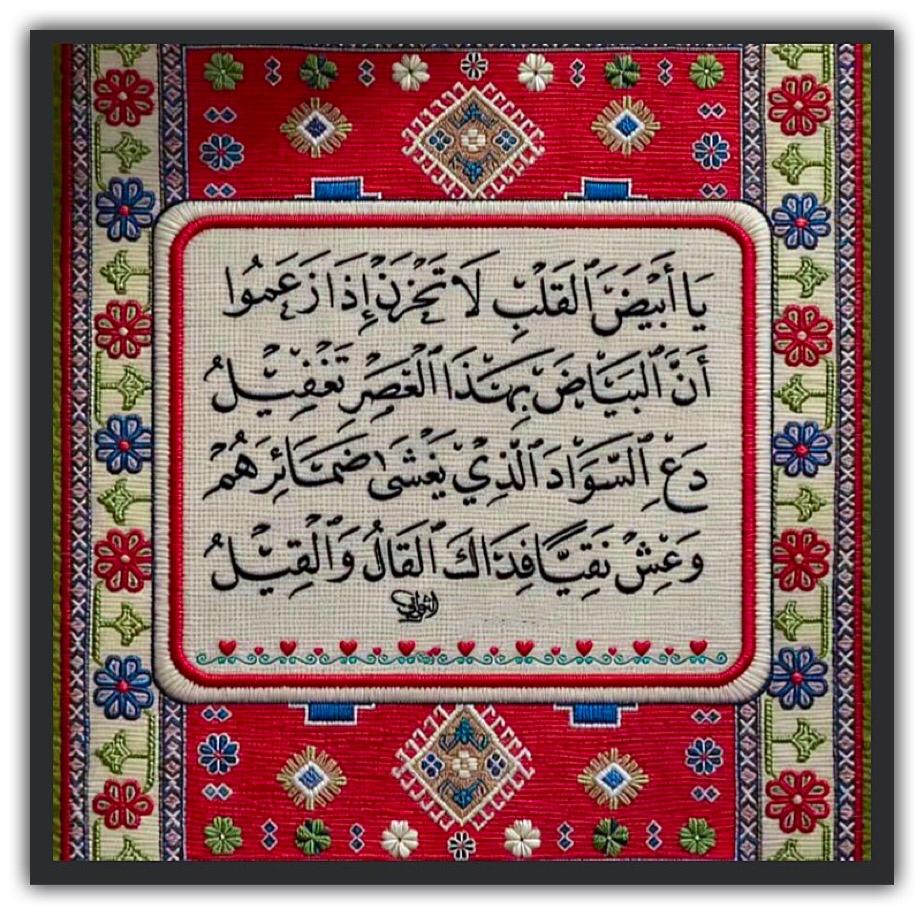 يَا أَبْيَضَ ٱلْقَلْبِ لَا تَحْزَنْ إِذَا زَعَمُوا
أَنَّ ٱلْبَيَاضَ بِهَذَا ٱلْعَصِرِ تَغْفِيْلُ
دَعِ ٱلسَّوَادَ ٱلَّذِيْ يَغْشَى ضَمَائِرَهُمْ
وَعِشْ نَقِيًّا فِدَاكَ ٱلْقَالُ وَٱلْقِيْلُ